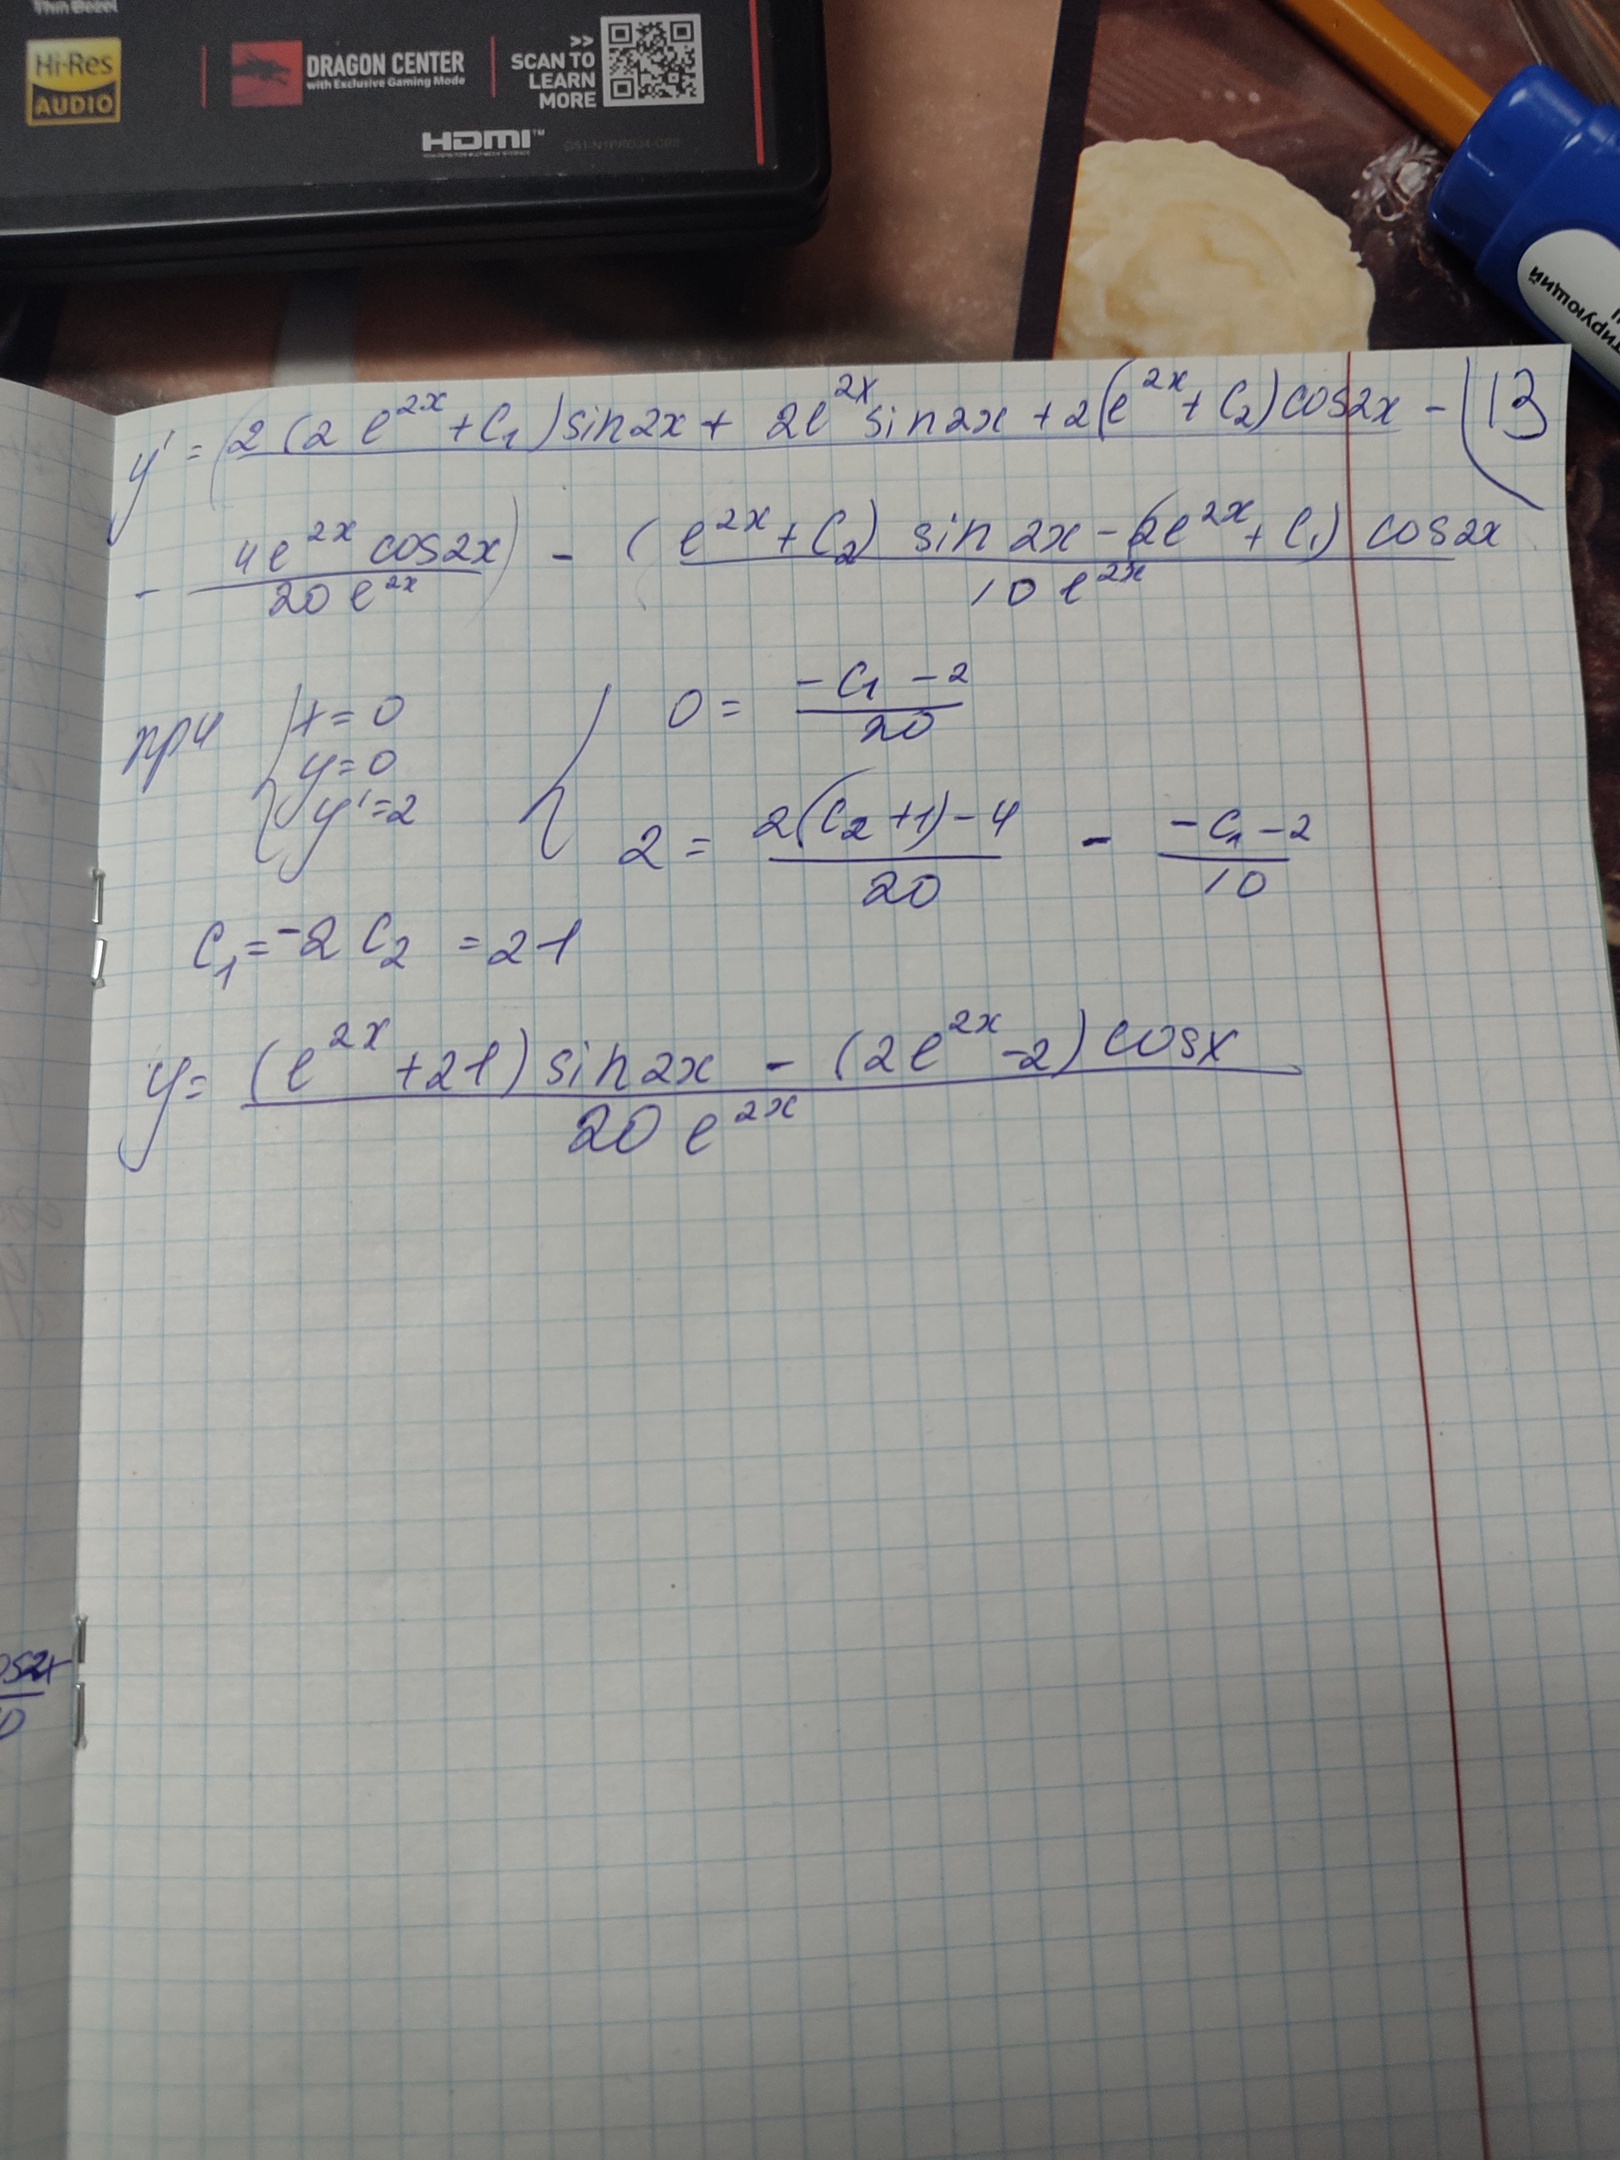 Thin Bezel
Hi-Res
AUDIO
DRAGON CENTER
with Exclusive Gaming Mode
>>
SCAN TO
LEARN
MORE
HDMI™
тирующий
y' = (2(2e^{2x}+C₁)sin2x + 2e^{2x}sin2x + 2(e^{2x}+C₂)cos2x -
13
- 4e^{2x}cos2x)/20e^{2x} - ((e^{2x}+C₂)sin2x-(2e^{2x}+C₁)cos2x)/10e^{2x}
при { x=0 { 0 = (-C₁-2)/20
y=0
y'=2 2 = (2(C₂+1)-4)/20 - (-C₁-2)/10
C₁=-2 C₂=21
y = ((e^{2x}+21)sin2x - (2e^{2x}-2)cosx)/20e^{2x}